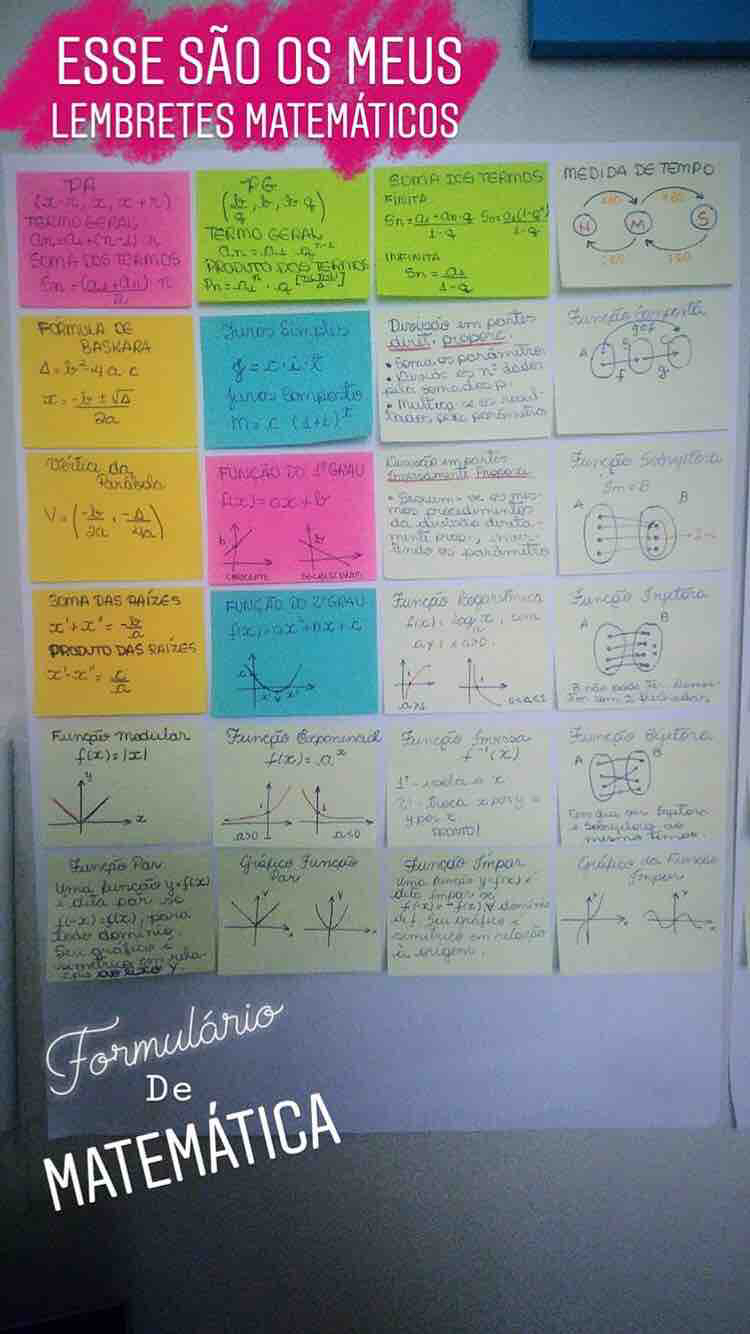 ESSE SÃO OS MEUS
LEMBRETES MATEMÁTICOS
PA
(x-r, x, x+r)
TERMO GERAL
an=a1+(n-1).r
SOMA DOS TERMOS
Sn=(a1+an).n
2
PG
(b/q, b, b.q)
TERMO GERAL
an=a1.q^n-1
PRODUTO DOS TERMOS
SOMA DOS TERMOS
FINITA
INFINITA
Sn=a1
1-q
MEDIDA DE TEMPO
H M S
FÓRMULA DE
BASKARA
Δ=b²-4a.c
x=-b±√Δ
2a
Juros Simples
j=c.i.t
Juros Composto
M=c (1+i)^t
Divisão em partes
diret. proporc.
• Soma os parâmetros
• Divisão os nº dados
pela soma dos p.
• Multica-se os resul-
tados pelo parâmetro
Função Composta
gof
A B C
f g
Vértice da
Parábola
V=(-b/2a, -Δ/4a)
FUNÇÃO DO 1º GRAU
f(x)=ax+b
b b
CRESCENTE DECRESCENTE
Divisão em partes
Inversamente Proporc.
mos procedimentos
da divisão direta-
mente prop., inver-
tendo os parâmetro
Função Sobrejetora
Im=B
A B
SOMA DAS RAÍZES
x'+x''=-b
a
PRODUTO DAS RAÍZES
x'.x''=c
a
FUNÇÃO DO 2º GRAU
f(x)=ax²+bx+c
x' x''
Função Logarítmica
a>1 0<a<1
Função Injetora
A B
B não pode
Função Modular
f(x)=|x|
y
x
Função Exponencial
f(x)=a^x
a>0 a<0
Função Inversa
f⁻¹(x)
1º-isola o x
2º-Troca x por y e
y por x
PRONTO!
Função Bijetora
A B
Tem que ser Injetora
e Sobrejetora ao
mesmo tempo.
Função Par
Uma função y=f(x)
é dita par se
f(-x)=f(x), para
todo domínio.
Seu gráfico é
simétrico em rela-
ção ao eixo y.
Gráfico Função
Par
y y
x x
Função Ímpar
Uma função y=f(x) é
dita ímpar se
f(-x)=-f(x) ∀ domínio
d f. Seu gráfico é
simétrico em relação
à origem.
Gráfico da Função
Ímpar
Formulário
De
MATEMÁTICA